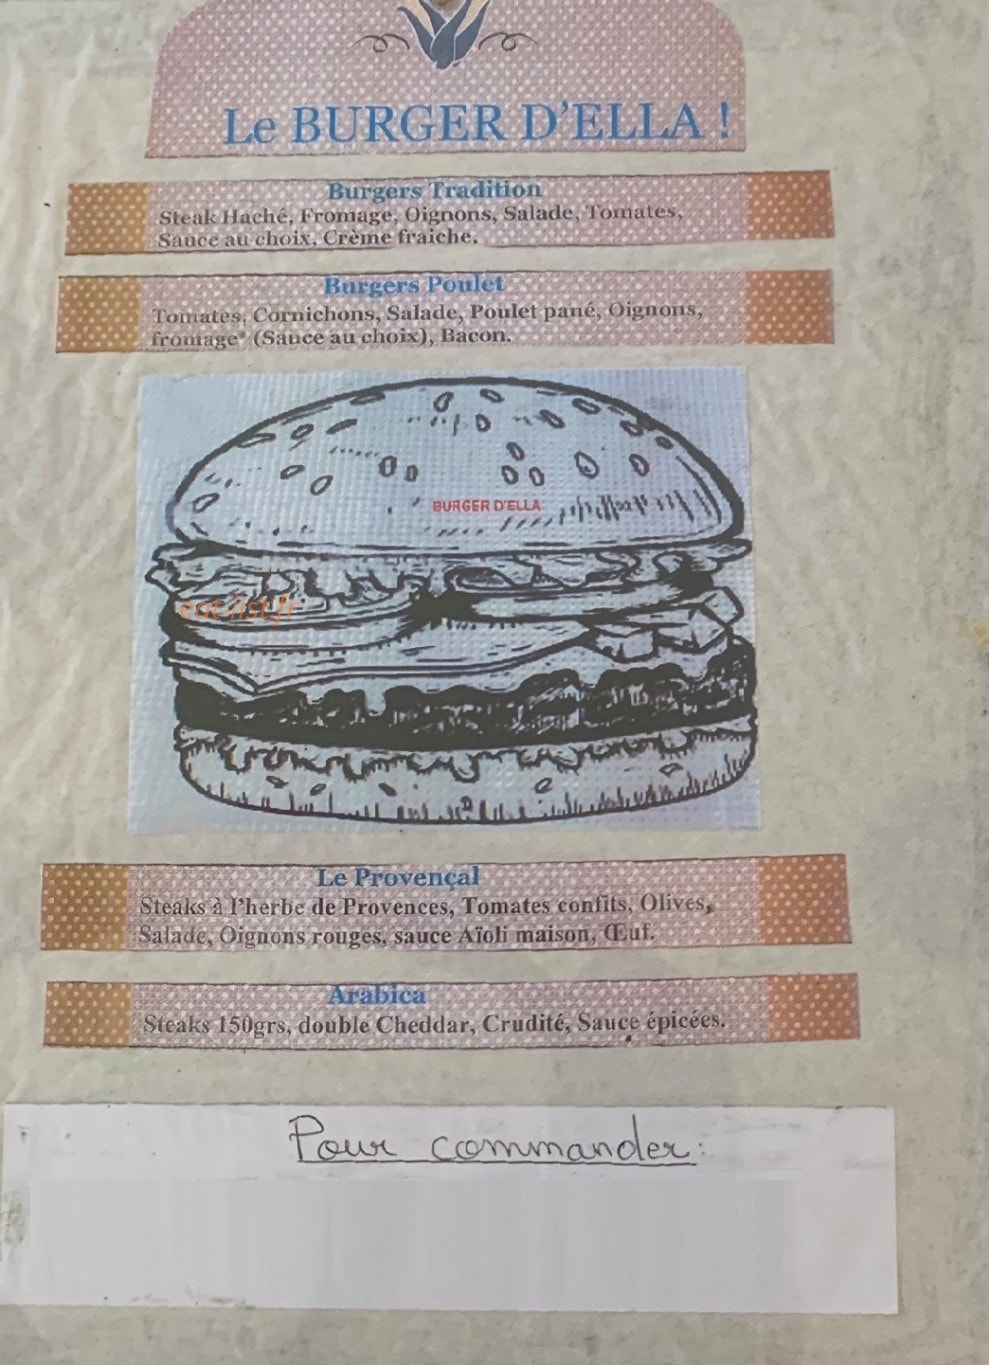 Le BURGER D'ELLA !
Burgers Tradition
Steak Haché, Fromage, Oignons, Salade, Tomates,
Sauce au choix, Crème fraiche.
Burgers Poulet
Tomates, Cornichons, Salade, Poulet pané, Oignons,
fromage* (Sauce au choix), Bacon.
BURGER D'ELLA
eat-list.fr
Le Provençal
Steaks à l'herbe de Provences, Tomates confits, Olives,
Salade, Oignons rouges, sauce Aïoli maison, Œuf.
Arabica
Steaks 150grs, double Cheddar, Crudité, Sauce épicées.
Pour commander: